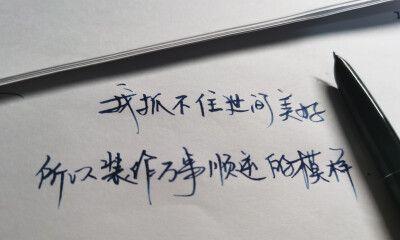 我抓不住世间美好
所以装作万事顺遂的模样